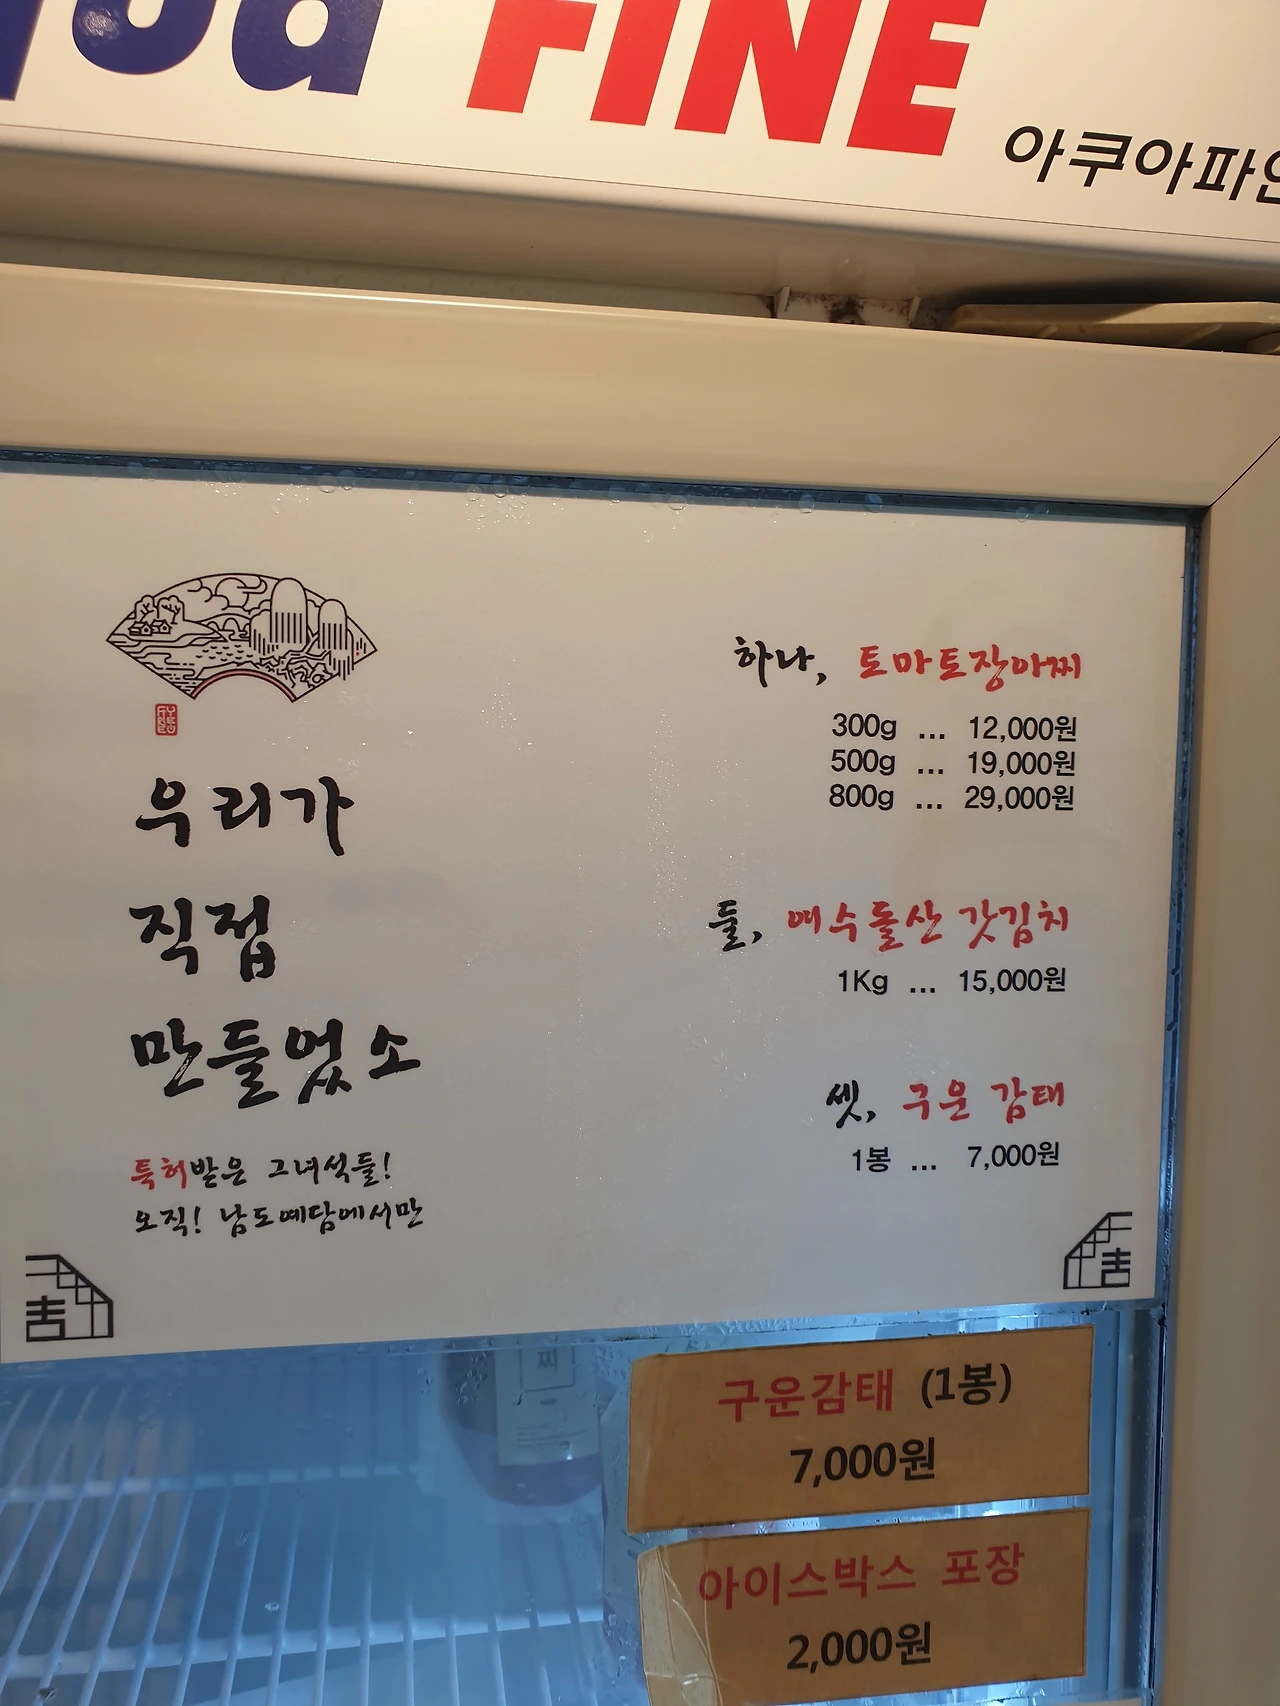 FINE
아쿠아파인
우리가
직접
만들었소
특허받은 그녀석들!
오직! 남도예담에서만
하나, 토마토장아찌
300g ... 12,000원
500g ... 19,000원
800g ... 29,000원
둘, 여수돌산 갓김치
1Kg ... 15,000원
셋, 구운 감태
1봉 ... 7,000원
찌
구운감태 (1봉)
7,000원
아이스박스 포장
2,000원